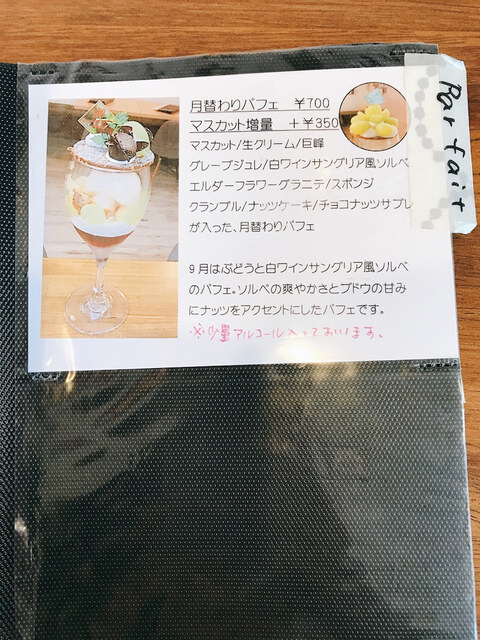 月替わりパフェ ￥700
マスカット増量 ＋￥350
マスカット/生クリーム/巨峰
グレープジュレ/白ワインサングリア風ソルベ
エルダーフラワーグラニテ/スポンジ
クランブル/ナッツケーキ/チョコナッツサブレ
が入った、月替わりパフェ
9月はぶどうと白ワインサングリア風ソルベ
のパフェ。ソルベの爽やかさとブドウの甘み
にナッツをアクセントにしたパフェです。
※少量アルコール入っております。
Parfait